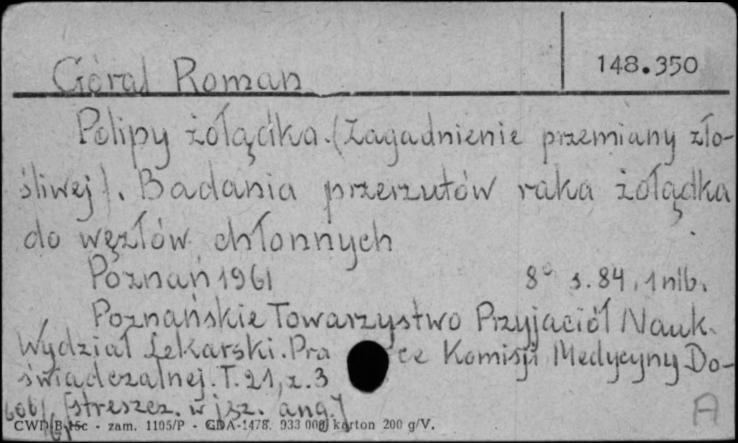 148.350
Góral Roman
Polipy żołądka. (Zagadnienie przemiany zło-
śliwej). Badania przerzutów raka żołądka
do węzłów chłonnych
Poznań 1961 8° s. 84, 1 nlb.
Poznańskie Towarzystwo Przyjaciół Nauk.
Wydział Lekarski. Pra ce Komisji Medycyny Do-
świadczalnej. T. 21, z. 3
[streszcz. w jęz. ang.]
CWD B 15c - zam. 1105/P - GDA-1478. 933 000 karton 200 g/V.
A